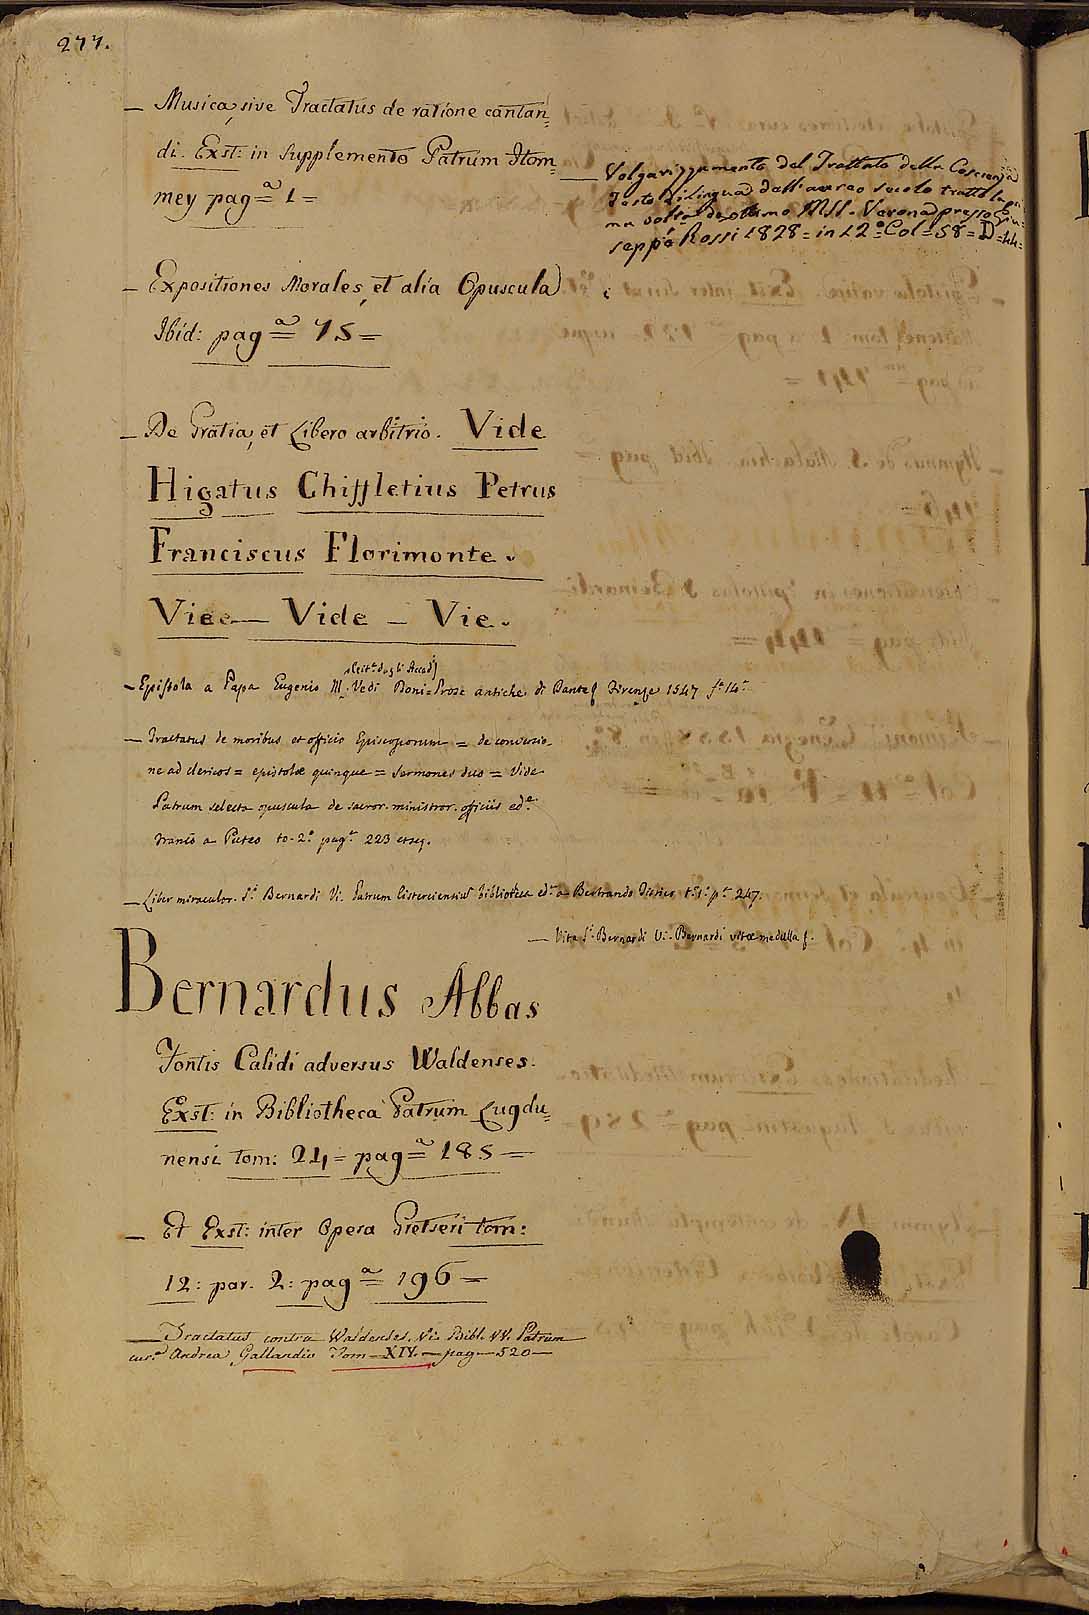 277.
— Musica, sive Tractatus de ratione cantan=
di. Exst: in Supplemento Patrum Hom=
mey pag.ª 1 =
— Volgarizzamento del Trattato della Coscienza
Testo di Lingua dell'aureo secolo tratto la pri
ma volta da ottimo MSS. Verona presso Giu=
seppe Rossi 1828 = in 12.º Col = 58 = D = 44 =
— Expositiones Morales, et alia Opuscula
Ibid: pag.ª 75 =
— De Gratia, et Libero arbitrio. Vide
Higatus Chiffletius Petrus
Franciscus Florimonte.
Viee — Vide — Vie.
— Epistola a Papa Eugenio III. Vedi Doni = Prose antiche di Dante Firenze 1547 f.º 14.
— Tractatus de moribus et officio Episcoporum = de conversio-
ne ad clericos = epistolæ quinque = Sermones duo = Vide
Patrum selecta opuscula de sacror. ministror. officiis ed.e
Franc.o a Puteo to. 2.º pag.e 223 et seq.
— Liber miraculor. S.i Bernardi Vi. Patrum Cisterciensium Bibliotheca ed.e a Bertrando Tissier t.º 1.º p.e 247.
— Vita S.i Bernardi Vi. Bernardi vitæ medulla
Bernardus Abbas
Fontis Calidi adversus Waldenses.
Exst: in Bibliotheca Patrum Lugdu=
nensi tom: 24 = pag.ª 185 =
— Et Exst: inter Opera Gretseri tom:
12: par. 2: pag.ª 196 =
— Tractatus contra Waldenses. Vi. Bibl. VV. Patrum
cur.e Andrea Gallandio Tom — XIV. — pag — 520 —